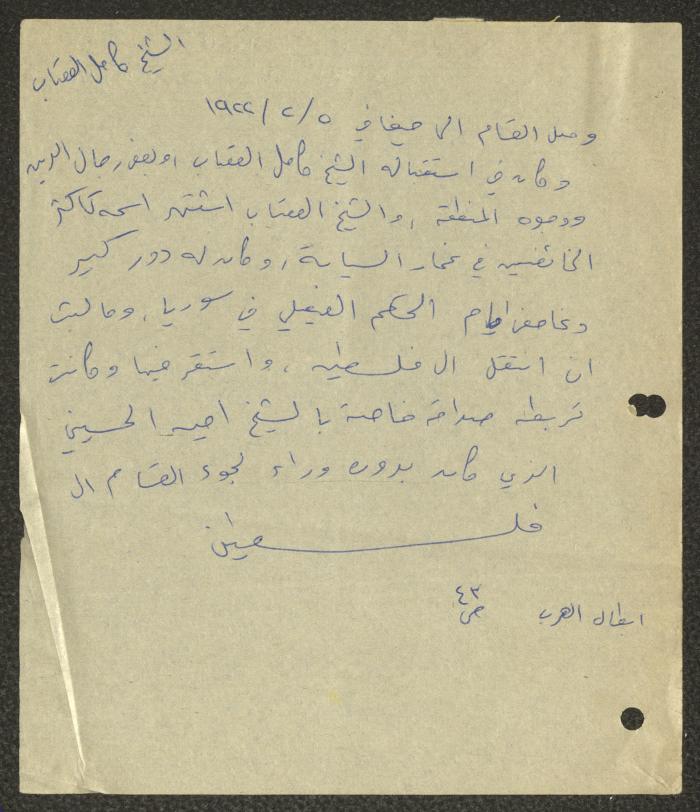 الشيخ كامل القصاب
وصل القسام الى حيفا في ٥/٢/١٩٢٢
وكان في استقباله الشيخ كامل القصاب وبعض رجال الدين
ووجوه المنطقة، والشيخ القصاب اشتهر اسمه كأكثر
الخائضين في غمار السياسة، وكان له دور كبير
وخاصة أيام الحكم الفيصلي في سوريا، وما لبث
ان انتقل الى فلسطين، واستقر فيها وكانت
تربطه صداقة خاصة بالشيخ امين الحسيني
الذي كان بدوره وراء لجوء القسام الى
فلسطين
ابطال العرب ص ٤٣